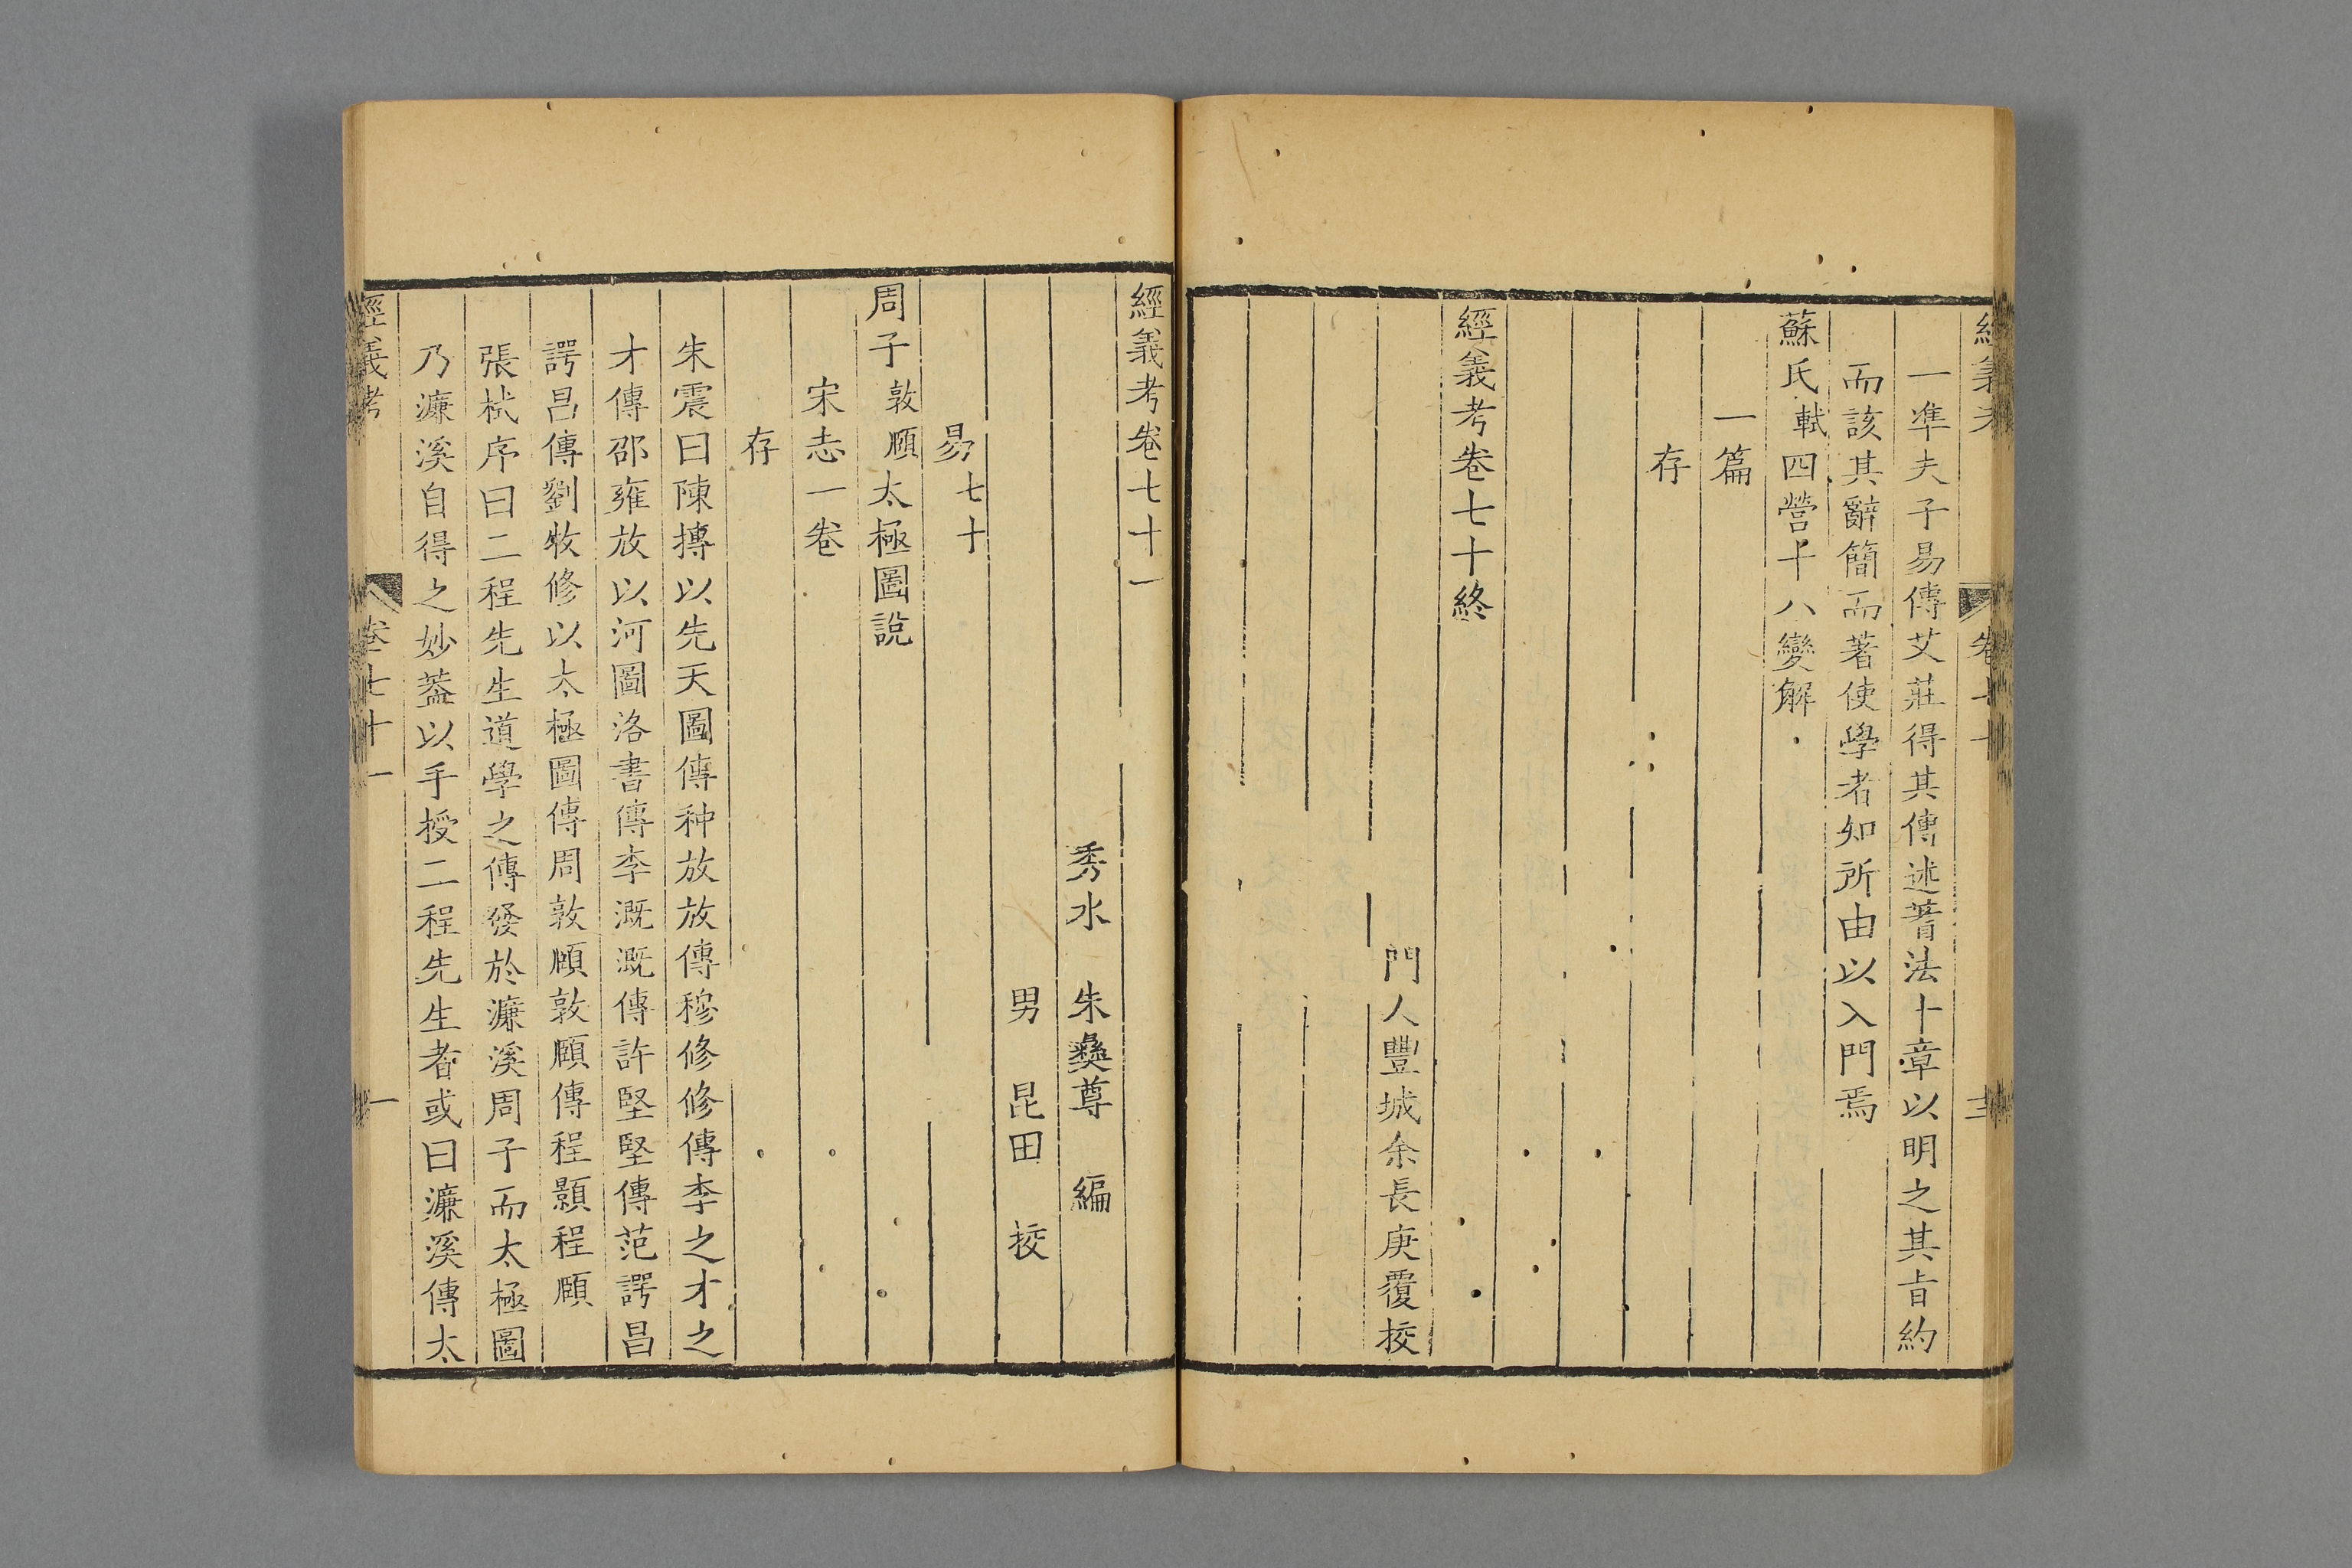 一準夫子易傳艾莊得其傳述蓍法十章以明之其旨約
而該其辭簡而著使學者知所由以入門焉
蘇氏軾四營十八變解
一篇
存
經義考卷七十終
門人豐城余長庚覆挍
經義考卷七十一
秀水 朱彝尊 編
男 昆田 挍
易七十
周子敦頤太極圖說
宋志一卷
存
朱震曰陳摶以先天圖傳种放放傳穆修修傳李之才之
才傳邵雍放以河圖洛書傳李溉溉傳許堅堅傳范諤昌
諤昌傳劉牧修以太極圖傳周敦頤敦頤傳程顥程頤
張栻序曰二程先生道學之傳發於濂溪周子而太極圖
乃濂溪自得之妙葢以手授二程先生者或曰濂溪傳太
經義考 卷七十一 一